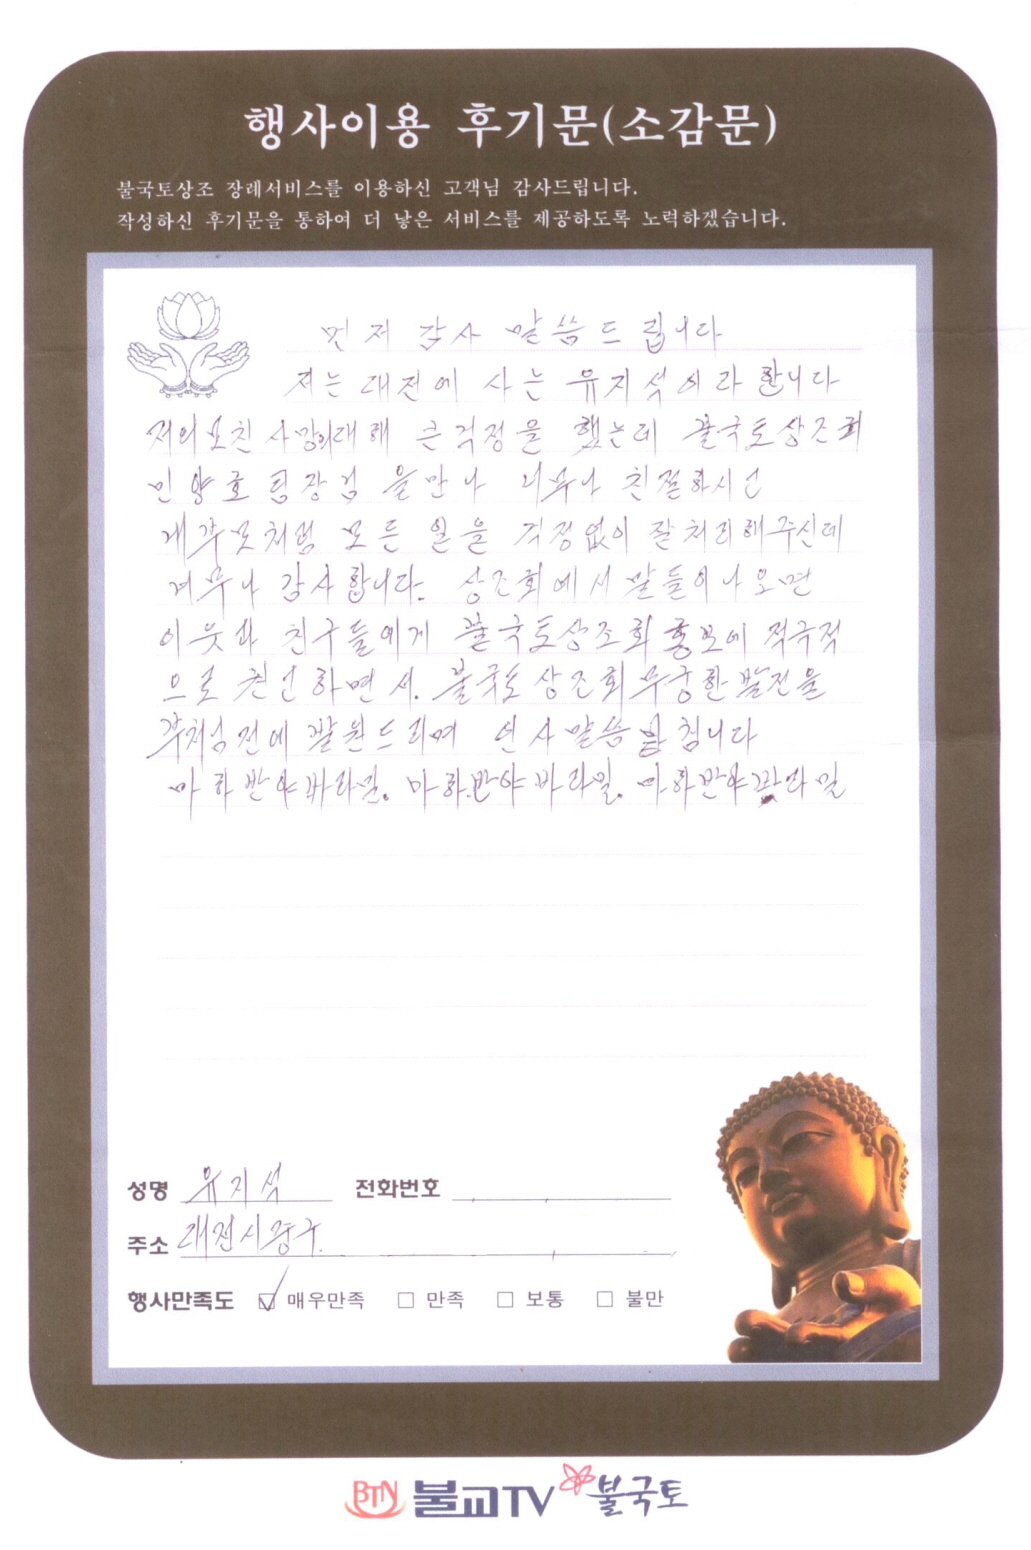 행사이용 후기문(소감문)
불국토상조 장례서비스를 이용하신 고객님 감사드립니다.
작성하신 후기문을 통하여 더 낳은 서비스를 제공하도록 노력하겠습니다.
먼저 감사 말씀드립니다
저는 대전에 사는 유지석이라 합니다
저의 모친 사망에대해 큰걱정을 했는데 불국토상조회
민양호 팀장님 을만나 너무나 친절하시고
제부모처럼 모든 일을 걱정없이 잘처리해주신데
너무나 감사합니다. 상조회에서 말들이나오면
이웃과 친구들에게 불국토상조회 홍보에 적극적
으로 권선하면서. 불국토상조회무궁한발전을
부처님전에 발원드리며 인사말씀 마침니다
마하반야바라밀. 마하반야바라밀. 마하반야바라밀
성명 유지석 전화번호
주소 대전시중구.
행사만족도 매우만족 만족 보통 불만
BTN 불교TV 불국토